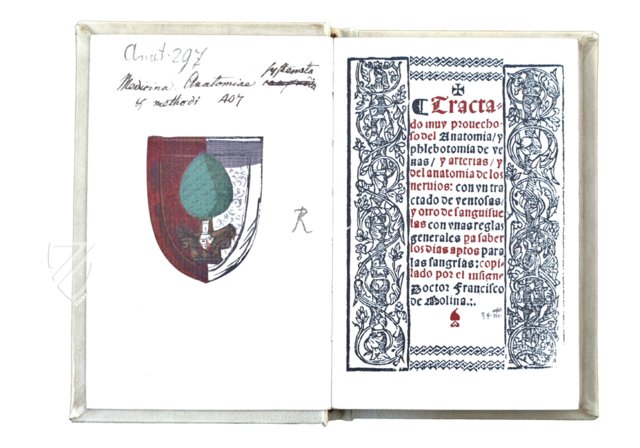 Anat. 297
Medicina Anatomiae systemata
et methodi 407
R
¶ Tracta-
do muy prouecho-
so del Anatomia/ y
phlebotomia de ve
nas/ y arterias/ y
del anatomia de los
neruios: con vn tra
ctado de ventosas/
y otro de sanguisue
las con vnas reglas
generales pa saber
los dias aptos para
las sangrias: copi
lado por el insigne
Doctor Francisco
de Molina.:.